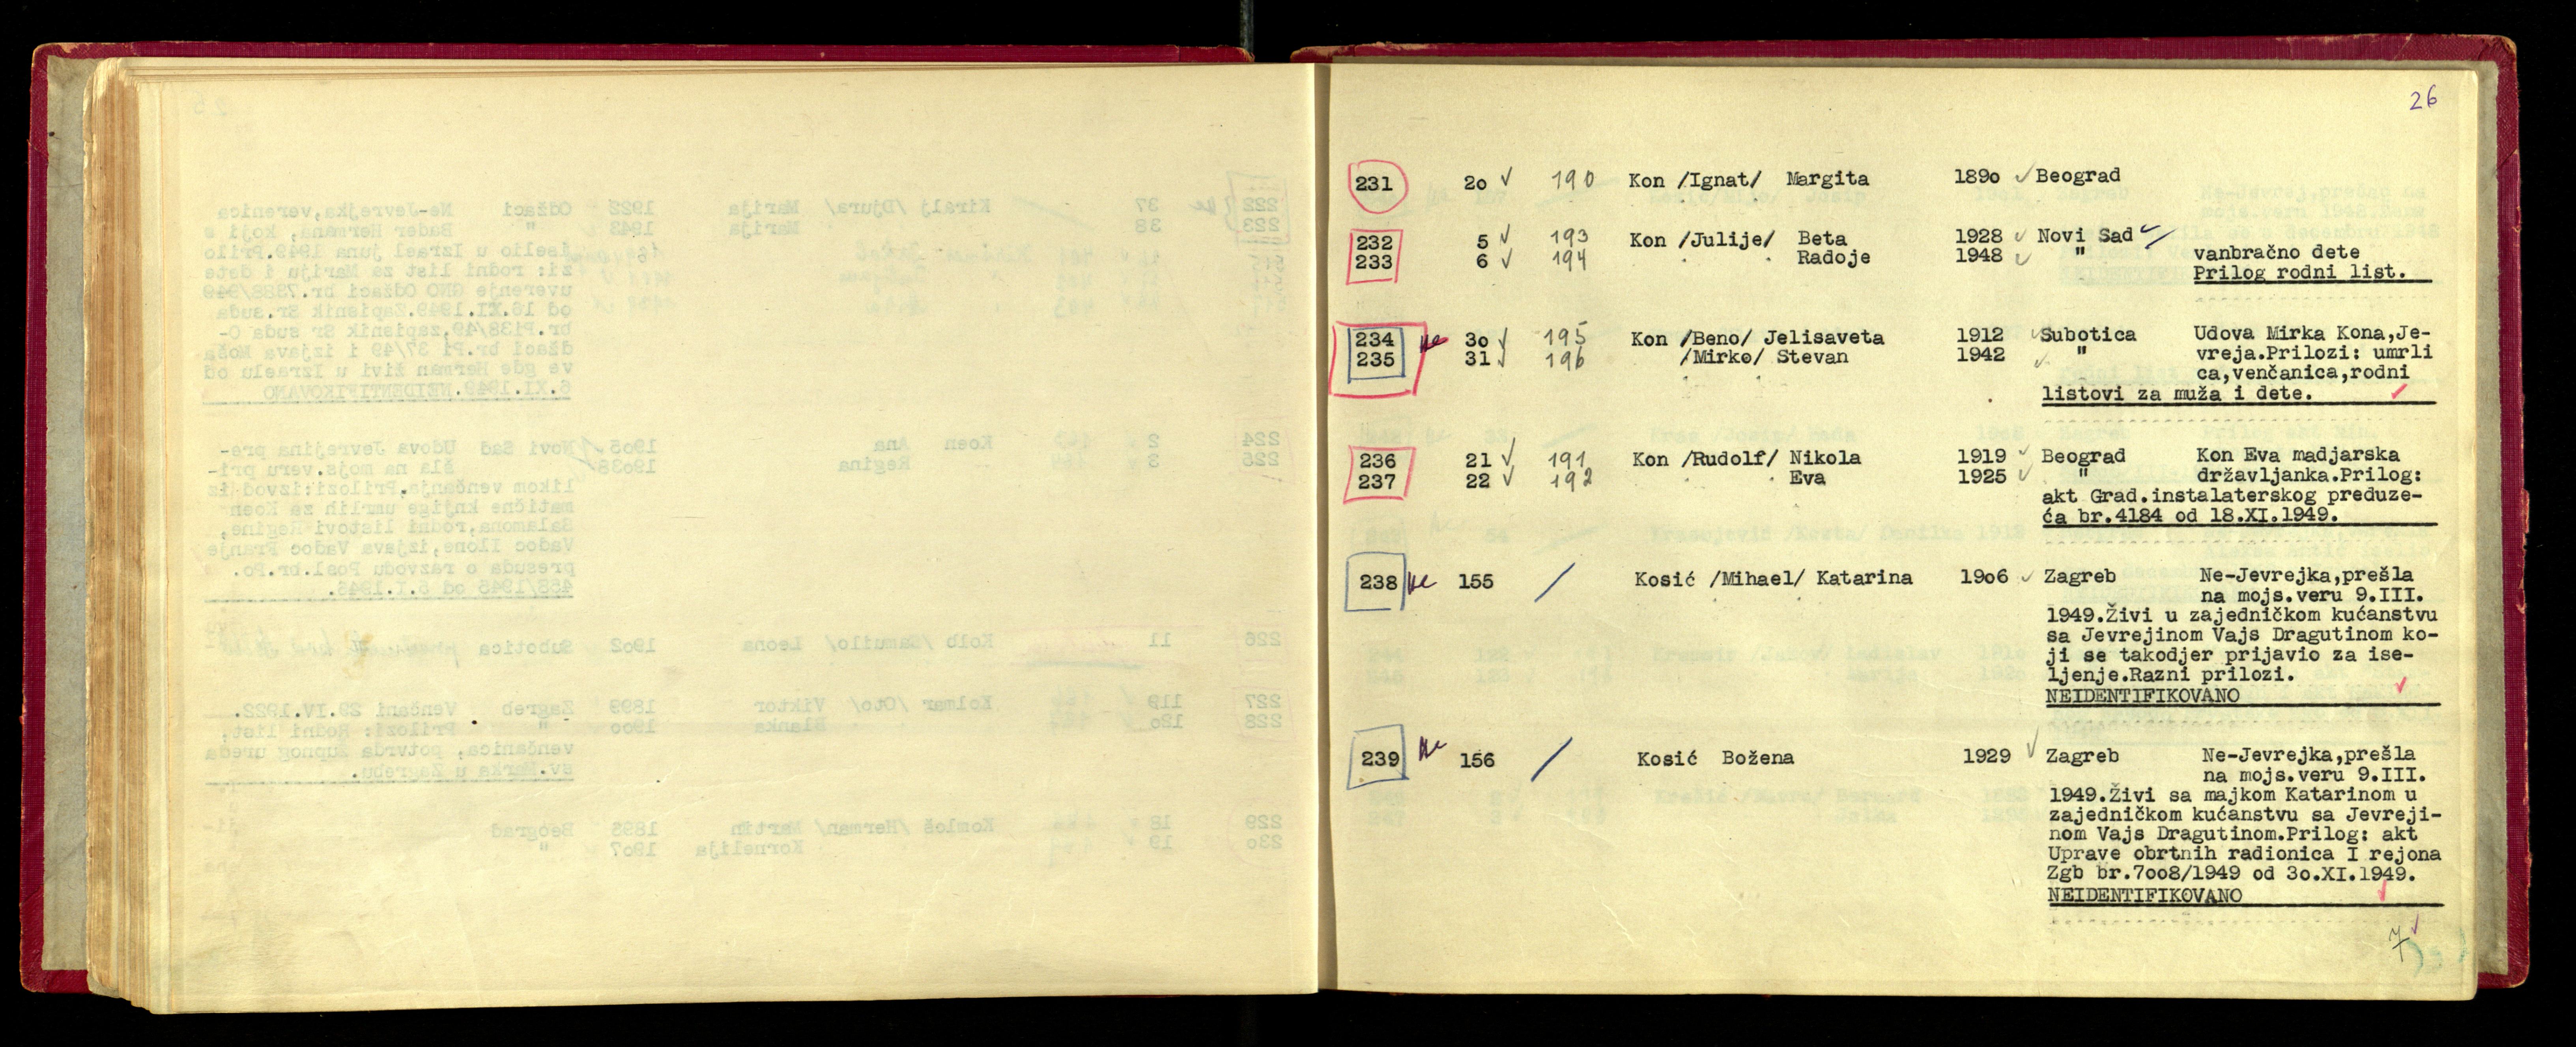 26
231 20 ✓ 190 Kon /Ignat/ Margita 189o ✓ Beograd
232 5 ✓ 193 Kon /Julije/ Beta 1928 ✓ Novi Sad
233 6 ✓ 194 Radoje 1948 ✓ " vanbračno dete
Prilog rodni list.
234 ne 3o ✓ 195 Kon /Beno/ Jelisaveta 1912 ✓ Subotica Udova Mirka Kona,Je-
235 31 ✓ 196 /Mirko/ Stevan 1942 ✓ " vreja.Prilozi: umrli
ca,venčanica,rodni
listovi za muža i dete. ✓
236 21 ✓ 191 Kon /Rudolf/ Nikola 1919 ✓ Beograd Kon Eva madjarska
237 22 ✓ 192 Eva 1925 ✓ " državljanka.Prilog:
akt Grad.instalaterskog preduze-
ća br.4184 od 18.XI.1949.
238 ne 155 / Kosić /Mihael/ Katarina 19o6 ✓ Zagreb Ne-Jevrejka,prešla
na mojs.veru 9.III.
1949.Živi u zajedničkom kućanstvu
sa Jevrejinom Vajs Dragutinom ko-
ji se takodjer prijavio za ise-
ljenje.Razni prilozi.
NEIDENTIFIKOVANO ✓
239 ne 156 / Kosić Božena 1929 ✓ Zagreb Ne-Jevrejka,prešla
na mojs.veru 9.III.
1949.Živi sa majkom Katarinom u
zajedničkom kućanstvu sa Jevreji-
nom Vajs Dragutinom.Prilog: akt
Uprave obrtnih radionica I rejona
Zgb br.7oo8/1949 od 3o.XI.1949.
NEIDENTIFIKOVANO ✓
7 ✓